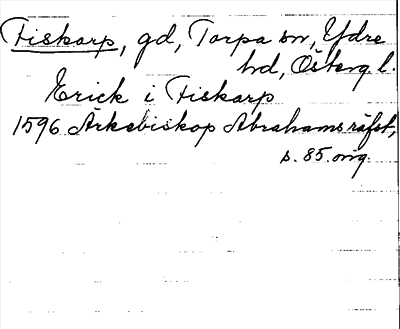 Fiskarp, gd, Torpa sn, Ydre
hd, Österg. l.
Erick i Fiskarp
1596 Ärkebiskop Abrahams räfst,
s. 85. orig.